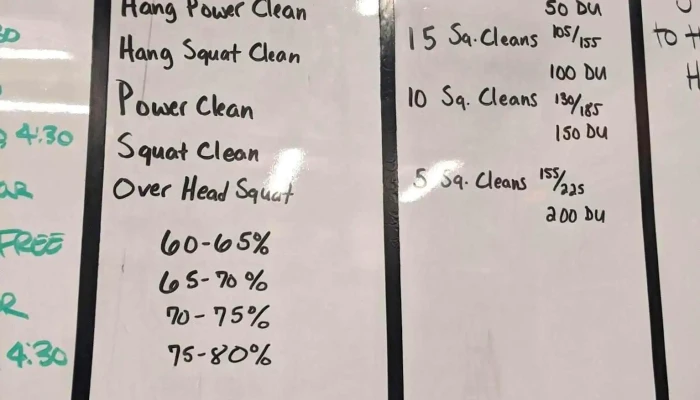 4:30
AR
FREE
R
4:30
Hang Power Clean
Hang Squat Clean
Power Clean
Squat Clean
Over Head Squat
60-65%
65-70%
70-75%
75-80%
50 DU
15 Sq. Cleans 105/155
100 DU
10 Sq. Cleans 130/185
150 DU
5 Sq. Cleans 155/225
200 DU
to